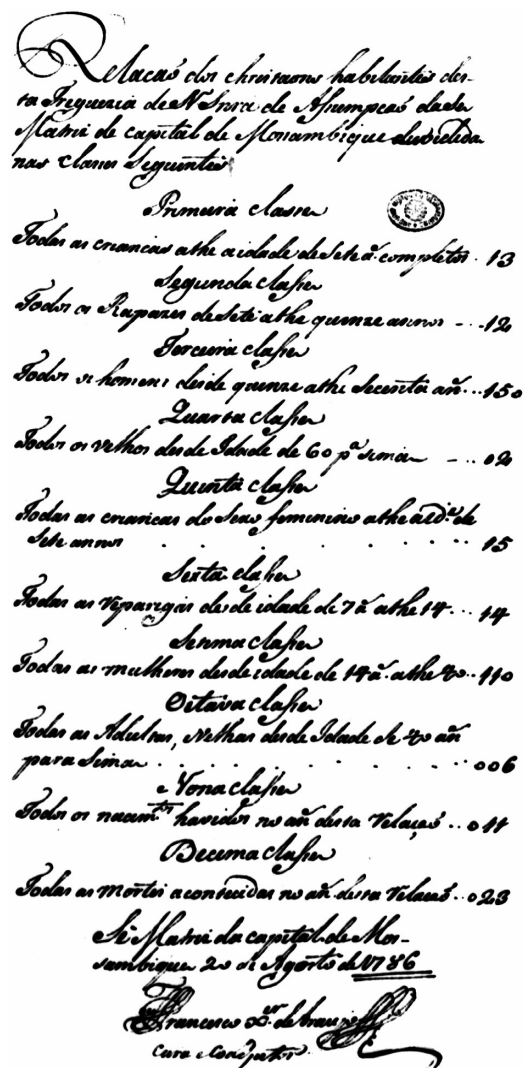 Relacaõ dos christaons habitantes des-
ta Freguezia de N Snra de Assumpcaõ da Se
Matriz de capital de Mossambique devidida
nas clases seguintes
Primeira classe
Todas as criancas athe a idade de Sete ã. completos . 13
Segunda classe
Todos os Rapazes de Sete athe quenze annos - .. 12
Terceira classe
Todos os homens desde quenze athe Secenta añ... 150
Quarta classe
Todos os velhos desde Idade de 60 pª sima - .. 02
Quinta classe
Todas as criancas do Sexo feminino athe a id.e de
Sete annos . . . . . . . . . 15
Sexta classe
Todas as reparigas desde idade de 7 ã athe 14 ... 14
Setima classe
Todas as mulheres desde idade de 14 ã. athe 40 .. 110
Oitava classe
Todas as Adultas, Velhas desde Idade de 40 añ
para Sima . . . . . . . . . 006
Nona classe
Todos os nacim.tos havidos no añ desta relaçaõ .. 011
Decima classe
Todas as mortes acontecidas no añ desta relacaõ .. 023
Sé Matriz da capital de Mos-
sambique 20 de Agosto de 1786
Francisco X.er de Araujo
Cura Coadjutor